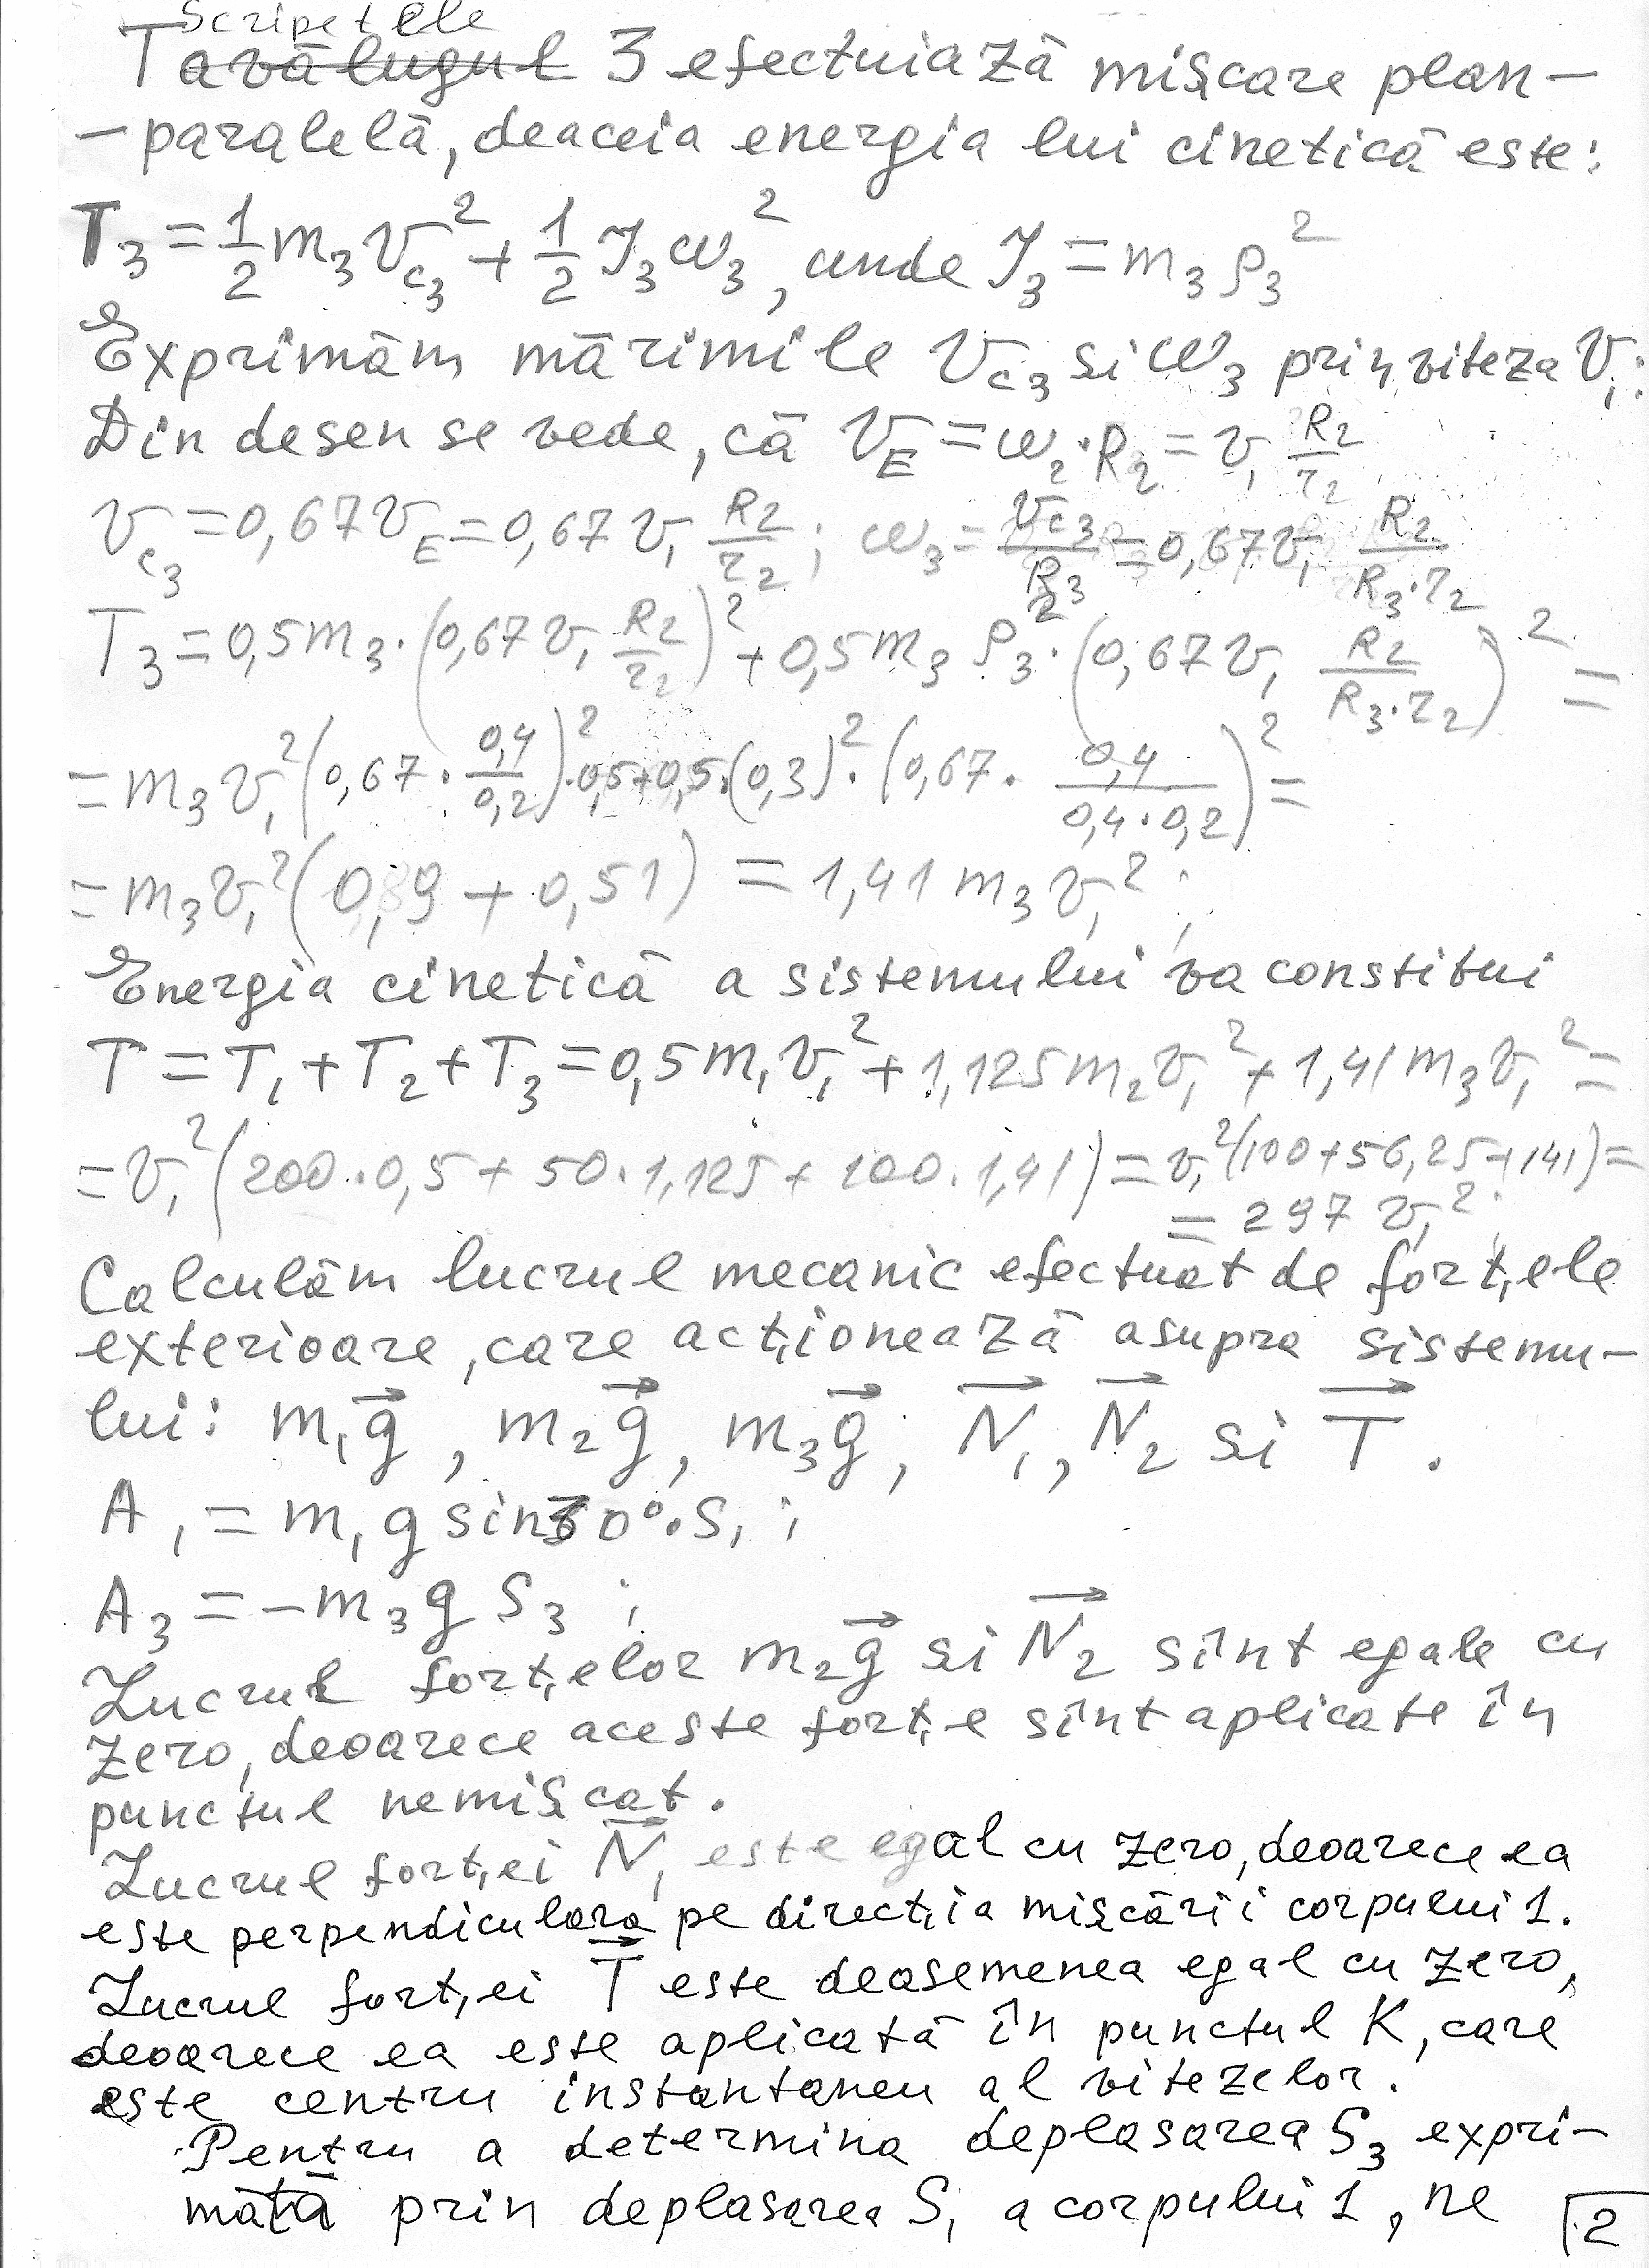 Scripetele
Tavălugul 3 efectuiază mișcare plan-
-paralelă, deaceia energia lui cinetică este:
T₃ = 1/2 m₃ v_c₃² + 1/2 J₃ ω₃², unde J₃ = m₃ ρ₃²
Exprimăm mărimile v_c₃ si ω₃ prin viteza v₁:
Din desen se vede, că v_E = ω₂·R₂ = v₁ R₂/r₂
v_c₃ = 0,67 v_E = 0,67 v₁ R₂/r₂; ω₃ = v_c₃/R₃ = 0,67 v₁ R₂/(R₃·r₂)
T₃ = 0,5 m₃·(0,67 v₁ R₂/r₂)² + 0,5 m₃ ρ₃²·(0,67 v₁ R₂/(R₃·r₂))² =
= m₃ v₁² (0,67 · 0,4/0,2)²·0,5 + 0,5·(0,3)²·(0,67 · 0,4/(0,4·0,2))² =
= m₃ v₁² (0,89 + 0,51) = 1,41 m₃ v₁²;
Energia cinetică a sistemului va constitui
T = T₁ + T₂ + T₃ = 0,5 m₁ v₁² + 1,125 m₂ v₁² + 1,41 m₃ v₁² =
= v₁² (200·0,5 + 50·1,125 + 100·1,41) = v₁² (100 + 56,25 + 141) =
= 297 v₁²;
Calculăm lucrul mecanic efectuat de forțele
exterioare, care acționează asupra sistemu-
lui: m₁g⃗, m₂g⃗, m₃g⃗, N⃗₁, N⃗₂ si T⃗.
A₁ = m₁ g sin30°·S₁;
A₃ = -m₃ g S₃;
Lucrul forțelor m₂g⃗ si N⃗₂ sînt egale cu
zero, deoarece aceste forțe sînt aplicate în
punctul nemișcat.
Lucrul forței N⃗₁ este egal cu zero, deoarece ea
este perpendiculara pe direcția mișcării corpului 1.
Lucrul forței T⃗ este deasemenea egal cu zero,
deoarece ea este aplicată în punctul K, care
este centru instantaneu al vitezelor.
Pentru a determina deplasarea S₃ expri-
mată prin deplasarea S₁ a corpului 1, ne
2